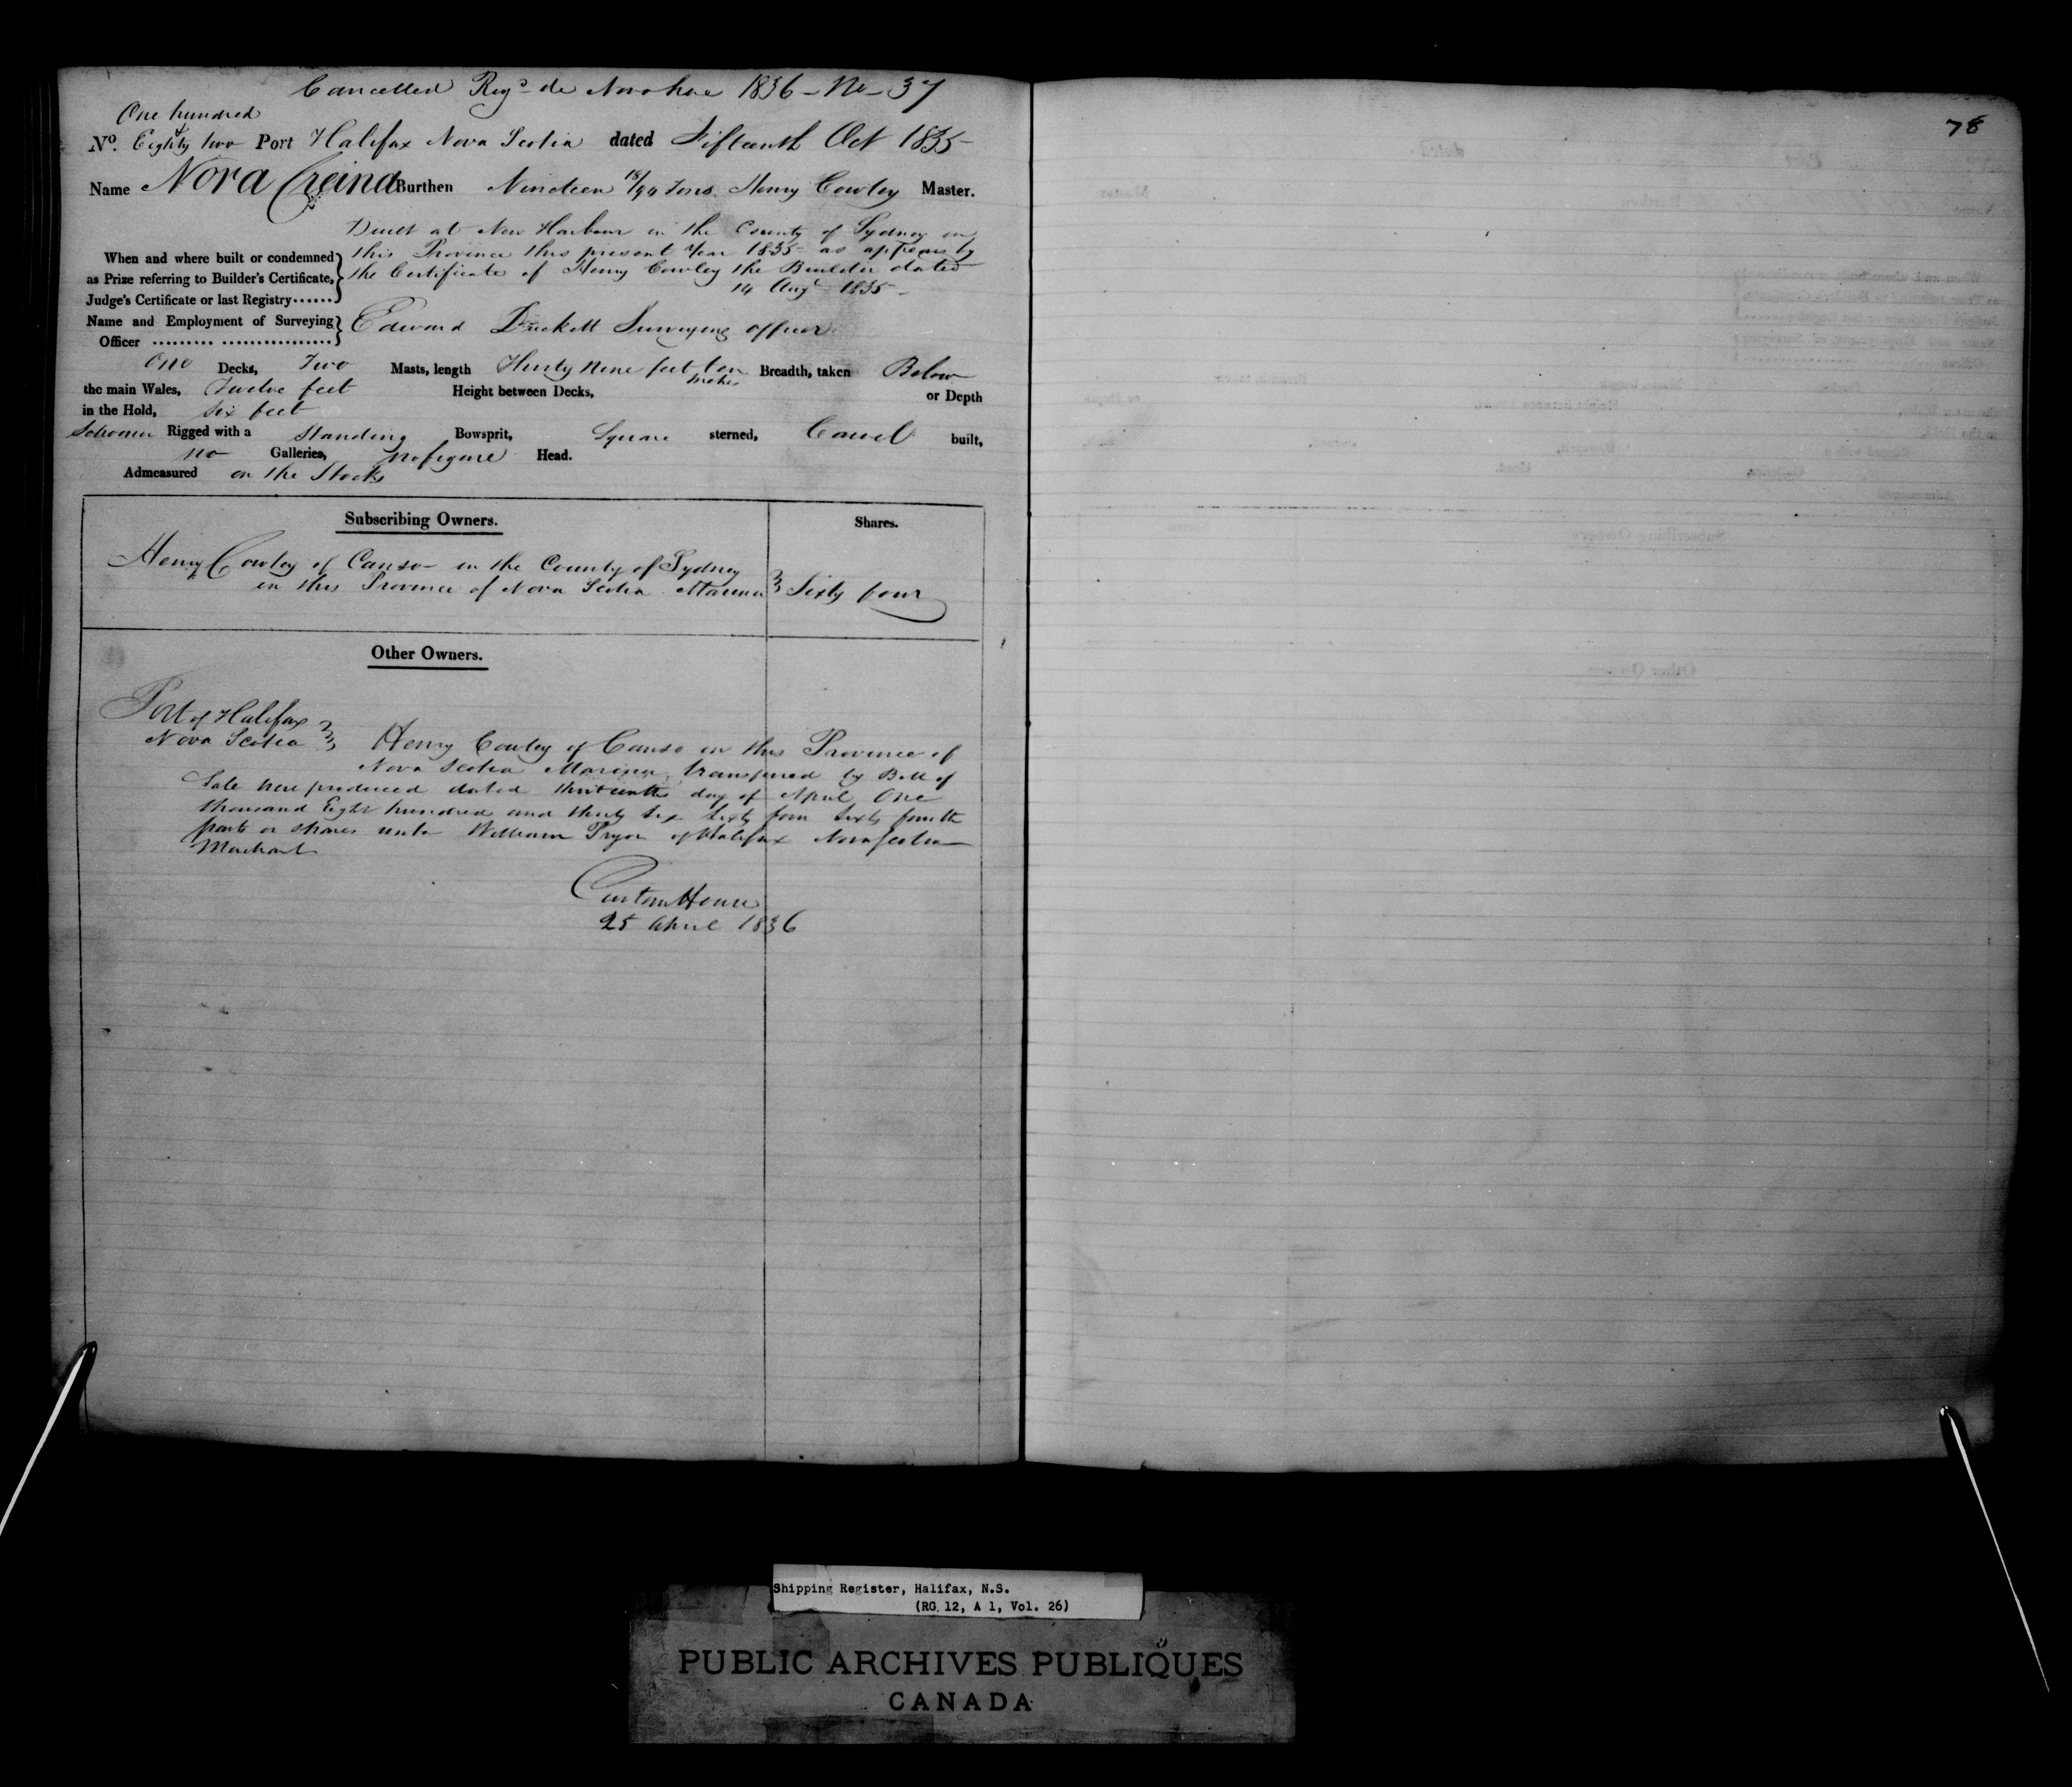 Cancelled Regd de Novo here 1836 - No - 37
One hundred
No. Eighty two Port Halifax Nova Scotia dated Fifteenth Oct 1835
Name Nora Creina Burthen Nineteen 18/94 Tons. Henry Cowley Master.
Built at New Harbour in the County of Sydney in
this Province this present Year 1835 as appears by
the Certificate of Henry Cowley the Builder dated
14 Augt 1835
When and where built or condemned
as Prize referring to Builder's Certificate,
Judge's Certificate or last Registry......
Name and Employment of Surveying
Officer ......... ................
Edward Duckett Surveying officer
One Decks, Two Masts, length Thirty nine feet ten inches Breadth, taken Below
the main Wales, Twelve feet Height between Decks, or Depth
in the Hold, Six feet
Schooner Rigged with a Standing Bowsprit, Square sterned, Carvel built,
no Galleries, no figure Head.
Admeasured on the Stocks
Subscribing Owners. Shares.
Henry Cowley of Canso in the County of Sydney
in this Province of Nova Scotia Mariner Sixty four
Other Owners.
Port of Halifax
Nova Scotia Henry Cowley of Canso in this Province of
Nova Scotia Mariner, transferred by Bill of
Sale here produced dated thirteenth day of April One
thousand Eight hundred and thirty six Sixty four Sixty fourth
parts or shares unto William Pryor of Halifax Nova Scotia
Merchant
Custom House
25 April 1836
78
Shipping Register, Halifax, N.S.
(RG 12, A 1, Vol. 26)
PUBLIC ARCHIVES PUBLIQUES
CANADA